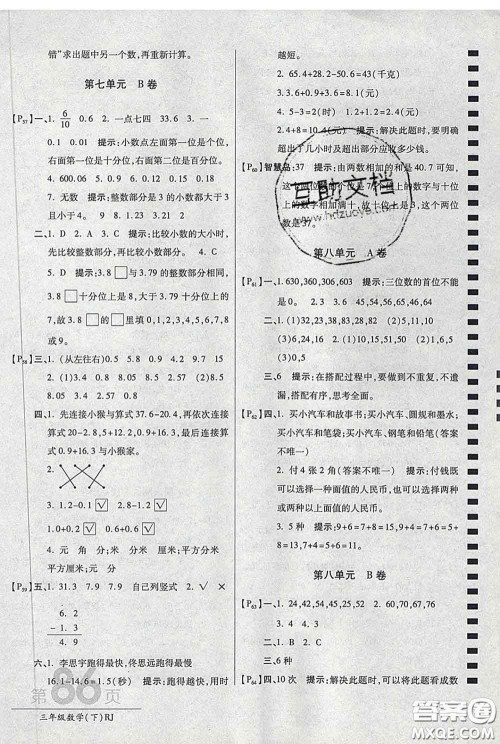 错”求出题中另一个数,再重新计算。
第七单元 B卷
【P57】一、1. 6/10 0.6 2. 一点七四 33.6 3. 一
0.01 0.9 提示:小数点左面第一位是个位,
右面第一位是十分位。
4. 600.06 5. 0.3 0.5 0.7 6. 5 15
7. 无数 提示:小数部分是3的小数都大于
3而小于4。 8. 9 9. 8.1 8.23 10. 2
二、1. D 2. A 3. C 提示:比较小数的大小,
先比较整数部分,再比较小数部分。
4. D 5. A 提示:3.□8与3.79的整数部分相
同,3.□8十分位上是8或9时大于3.79,当
3.□8十分位上是7时,3.□8百分位上的8
小于3.79百分位上的9,此时3.□8小于3.79,
故3.□8的□里最小填8,大于8也可以,即8
或9。
【P58】三、1. (从左往右) 0.5 0.8 0.9 4.1 5.2
2. 1.1 5.9 1.5 6.9 3. (1)> (2)8.5
8.0 8.2 0.3
四、1. 先连接小猴与算式37.6-20.4,再依次连接
算式20-6.8,5.2+12.5,16.3-8.9,12.5-5.2,
0.9+16.3与小猴家。
2.
3. 1.2-0.1 ☑ 2-1.9 ☑
1.0+0.2 ☑ 0.6+0.6 ☑
4. 元 角 分 米 分米 厘米
【P59】五、1. 31.3 7.9 7.9 自己列竖式 2. √
3. 2
- 1. 3
1. 9
六、1. 李思宇跑得最快,佟思远跑得最慢
16.1-14.6=1.5(秒) 提示:用时越短,跑得
第86页
三年级数学(下)RJ
越短。
2. 65.4+28.2-50.6=43(千克)
3. 3.6+0.9+3.6=8.1(元)
4. 2+8=10(元) 提示:解决此题时,要明确
超出了几小时及超出部分应收多少钱。
【P60】智慧岛:37 提示:由两数相加的和是40.7可知,
这两位数的个位是7,十位上的数字与十分
位上的数字相加满十,故十位上是3,这个两位
数是37。
互助文档
www.hdzuoye.com
第八单元 A卷
【P61】一、1. 630,360,306,603 提示:三位数的首位不能
是0。 2. 45,54,56,65,46,64 3. 10
二、1. (1)32,34,35,52,53,54
(2)19,29,39,59
三、6 提示:在搭配过程中,要做到不重复、不遗
漏,搭配有序,思考全面。
【P62】四、1. 买小汽车和故事书;买小汽车、圆规和墨水;
买小汽车和笔袋;买小汽车、钢笔和铅笔(答案
不唯一)
2. 付4张2角(答案不唯一) 提示:付钱既可
以付一种面值的人民币,也可以付几种不同面
值的人民币。
3. 5种 提示:9+4=8+5=7+6=13,9+7=8+
8=16。
第八单元 B卷
【P63】一、1. 24,42,45,54,25,52 2. 60,70,67,76
二、1. B 2. C
三、6种
【P64】四、10次 提示:解决此题时,可以将此题看成数
答案圈
MXQE.COM